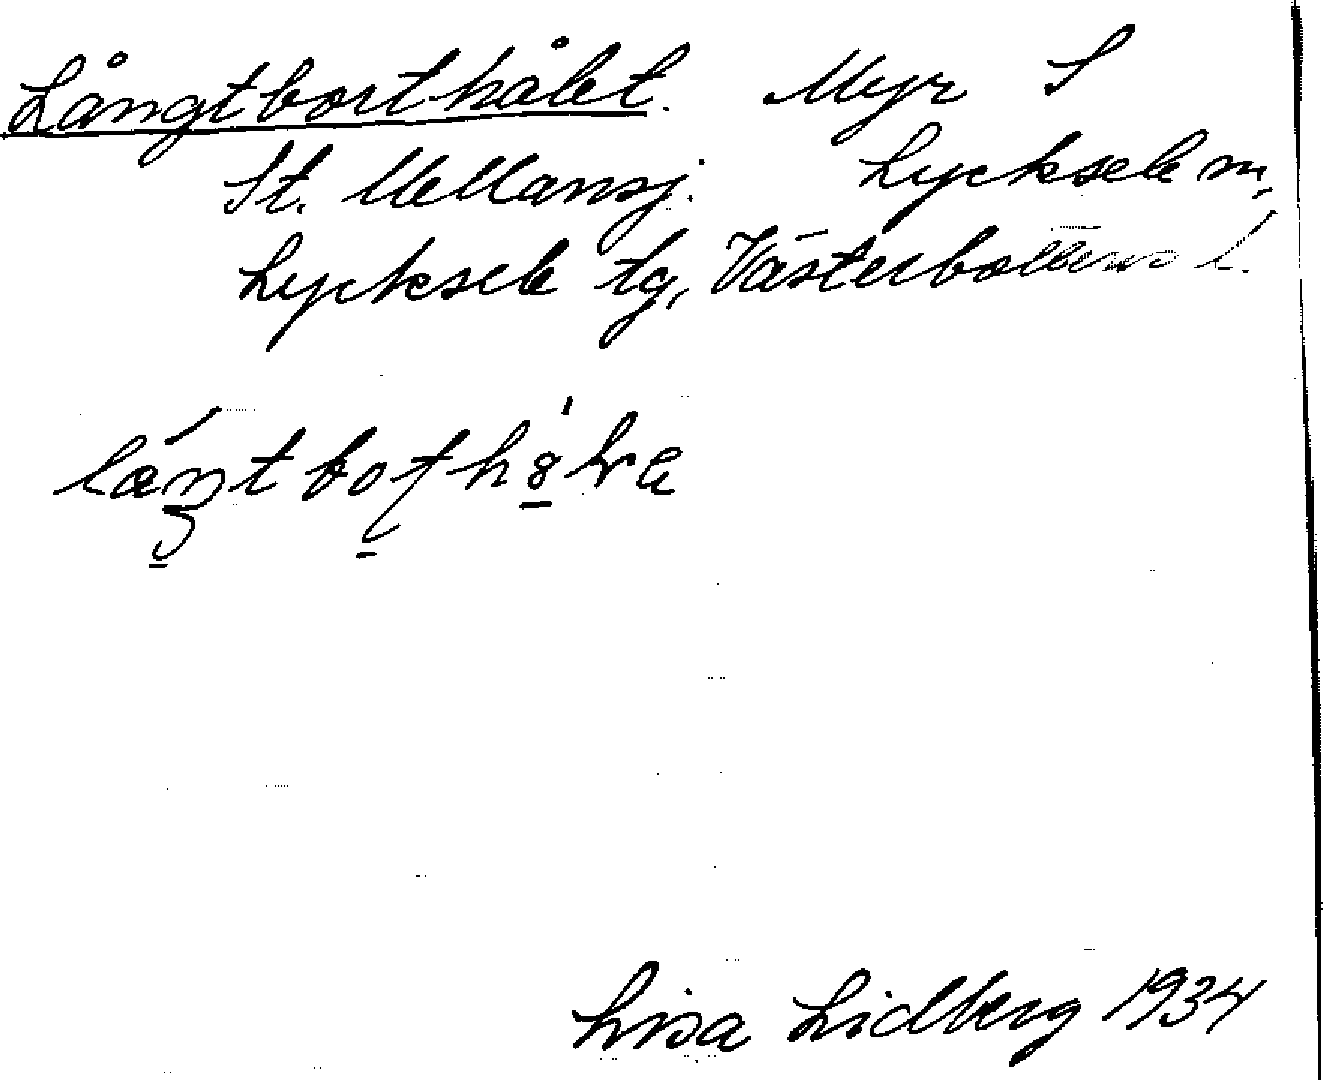 Långtborthålet. Myr S
St. Mellansj. Lycksele m,
Lycksele tg, Västerbottens l.
Lisa Lidberg 1934